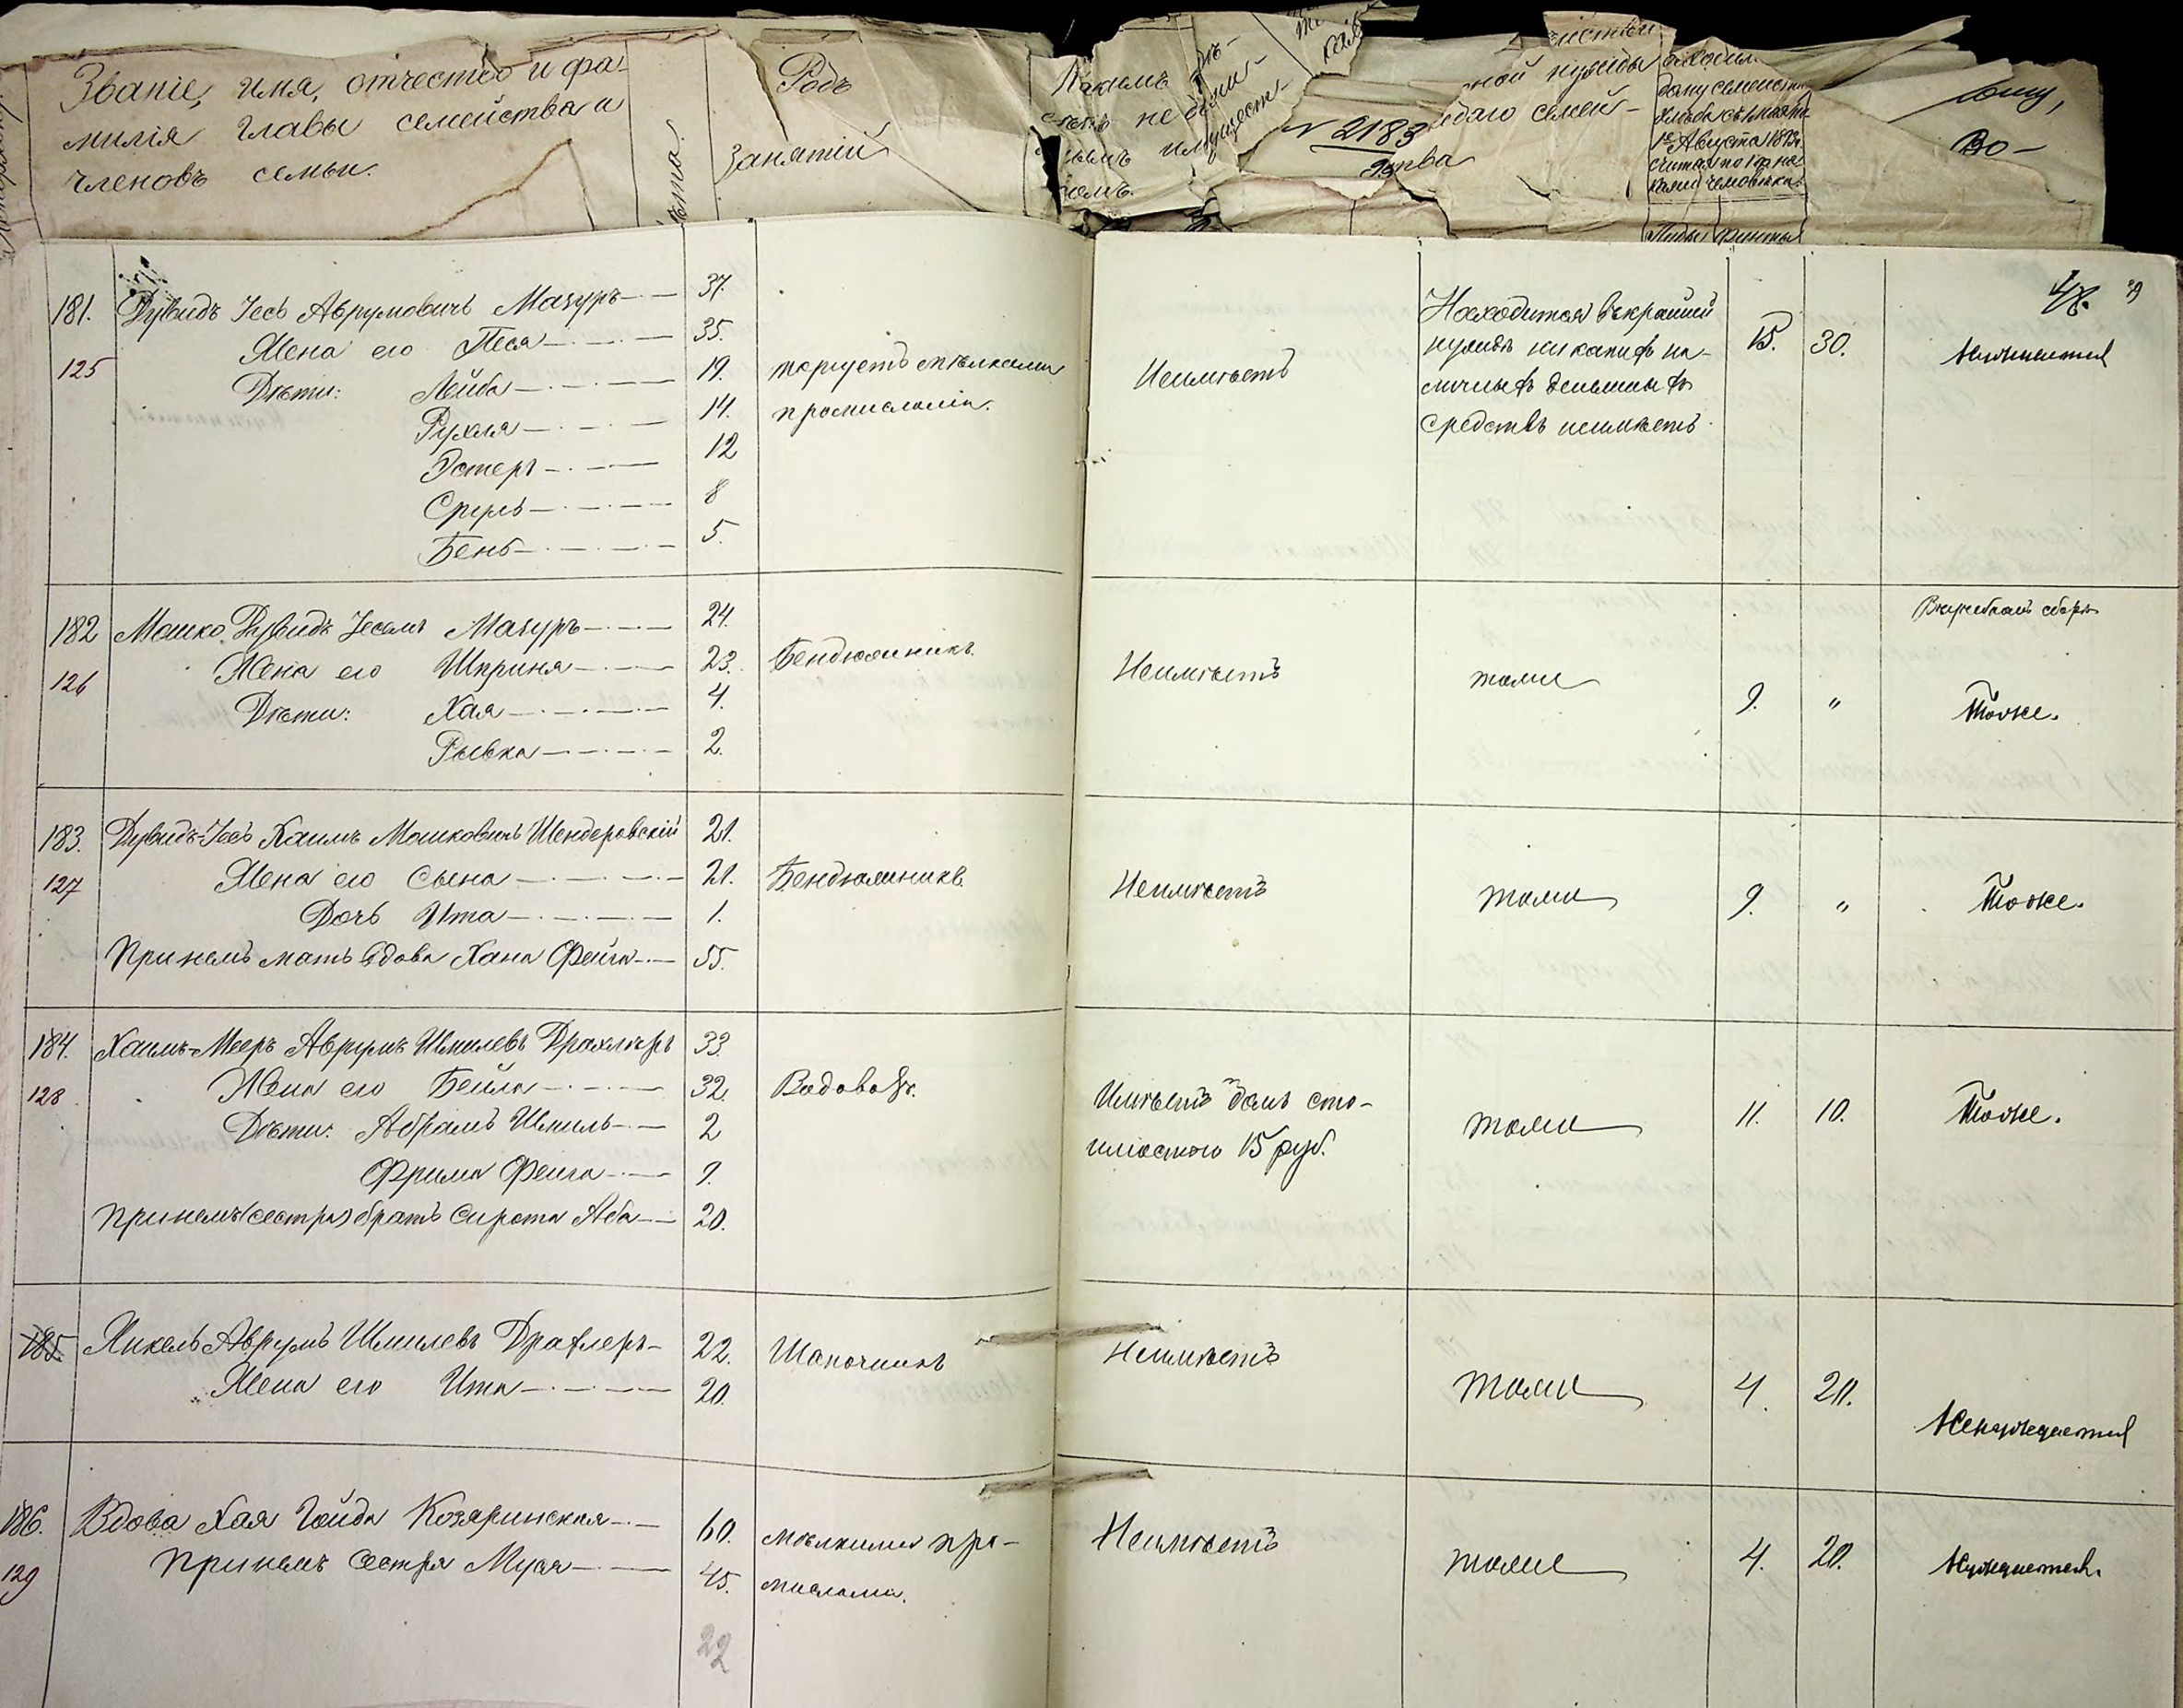 Званіе, имя, отчество и фа-
милія главы семейства и
членовъ семьи.
Родъ
занятій
Какимъ
не
N 2183
ной нужды
семей-
ства
дому семейств
1е Августа 1873 г.
считая по 1 п. на
каждого человѣка.
Пуды
Фунты
48.
181.
Дувидъ Іось Аврумовичъ Мазуръ
37.
125
Жена его Песя
35.
Дѣти: Лейба
19.
Рухля
14.
Эстеръ
12
Сруль
8
Бень
5.
торгуетъ мѣлкими
промислами.
Неимѣетъ
Находится въ крайней
нуждѣ никакихъ на-
личныхъ деньжныхъ
средствъ неимѣетъ.
15.
30.
Нуждается
182
Мошко Дувидъ Іосемъ Мазуръ
24.
126
Жена его Шприня
23.
Дѣти: Хая
4.
Рывка
2.
Бендюжникъ.
Неимѣетъ
тоже
9.
"
Тоже.
183.
Дувидъ-Іось Хаимъ Мошковичъ Шендеровскій
21.
127
Жена его Сына
21.
Дочь Ита
1.
При немъ мать вдова Хана Фейга
55.
Бендюжникъ.
Неимѣетъ
тоже
9.
"
Тоже.
184.
Хаимъ-Мееръ Аврумъ Шмилевъ Драхлеръ
33.
128
Жена его Бейла
32.
Дѣти: Абрамъ Шмиль
2
Фрима Фейга
9.
При немъ (сестра) братъ сирота Аба
20.
Водовозъ.
Имѣетъ домъ сто-
имостью 15 руб.
тоже
11.
10.
Тоже.
185.
Янкель Аврумъ Шмилевъ Драхлеръ
22.
Жена его Ита
20.
Шапочникъ
Неимѣетъ
тоже
4.
20.
Ненуждается
186.
Вдова Хая Гойда Козаринская
60.
129
При немъ сестра Муся
45.
мѣлкими про-
мислами.
Неимѣетъ
тоже
4.
20.
Нуждается.
22